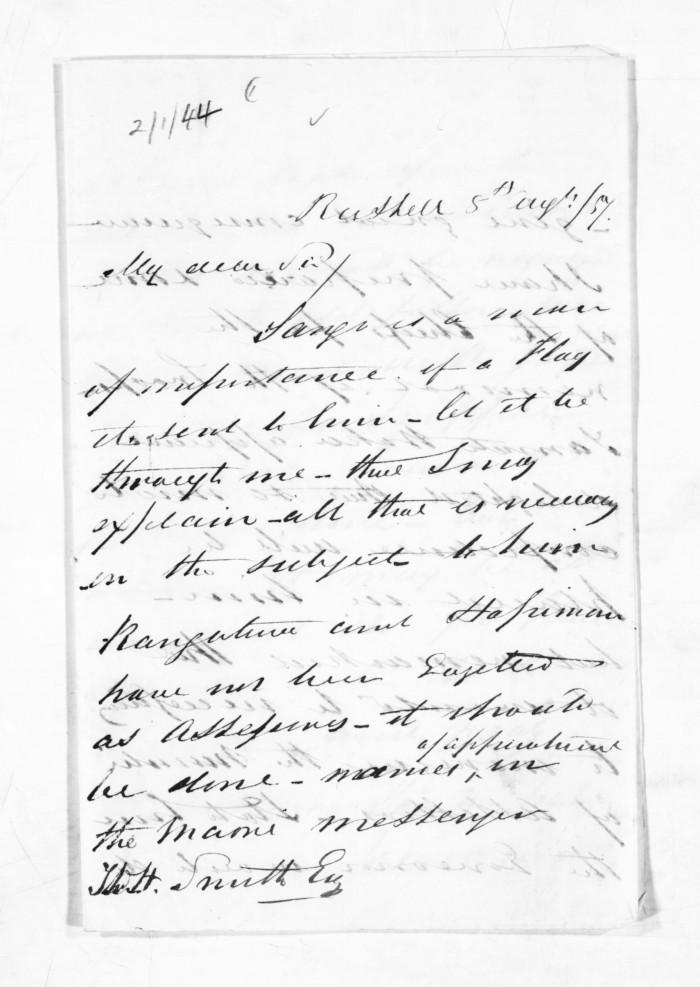 2/1/44
Russell 5th Augt. /57.
My dear Sir/
Tango is a man
of importance. if a Flag
is sent to him - let it be
through me - that I may
explain - all that is necessary
on the subject to him
Rangatira and Hapimana
have not been Gazetted
as Assessors - it should
be done - names, in
of appointment
the Maori messenger
Th. H. Smith Esq